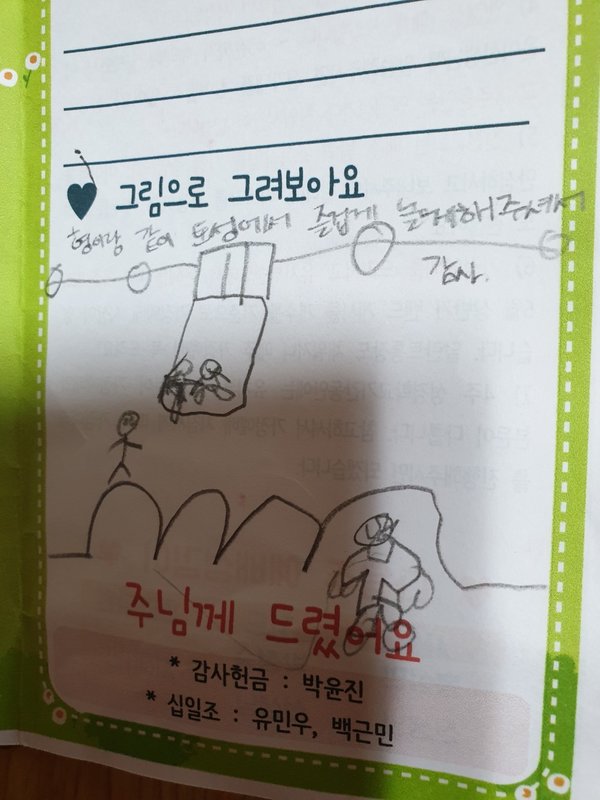 그림으로 그려보아요
형이랑 같이 도성에서 즐겁게 놀게해주셔서
감사.
주님께 드렸어요
* 감사헌금 : 박윤진
* 십일조 : 유민우, 백근민